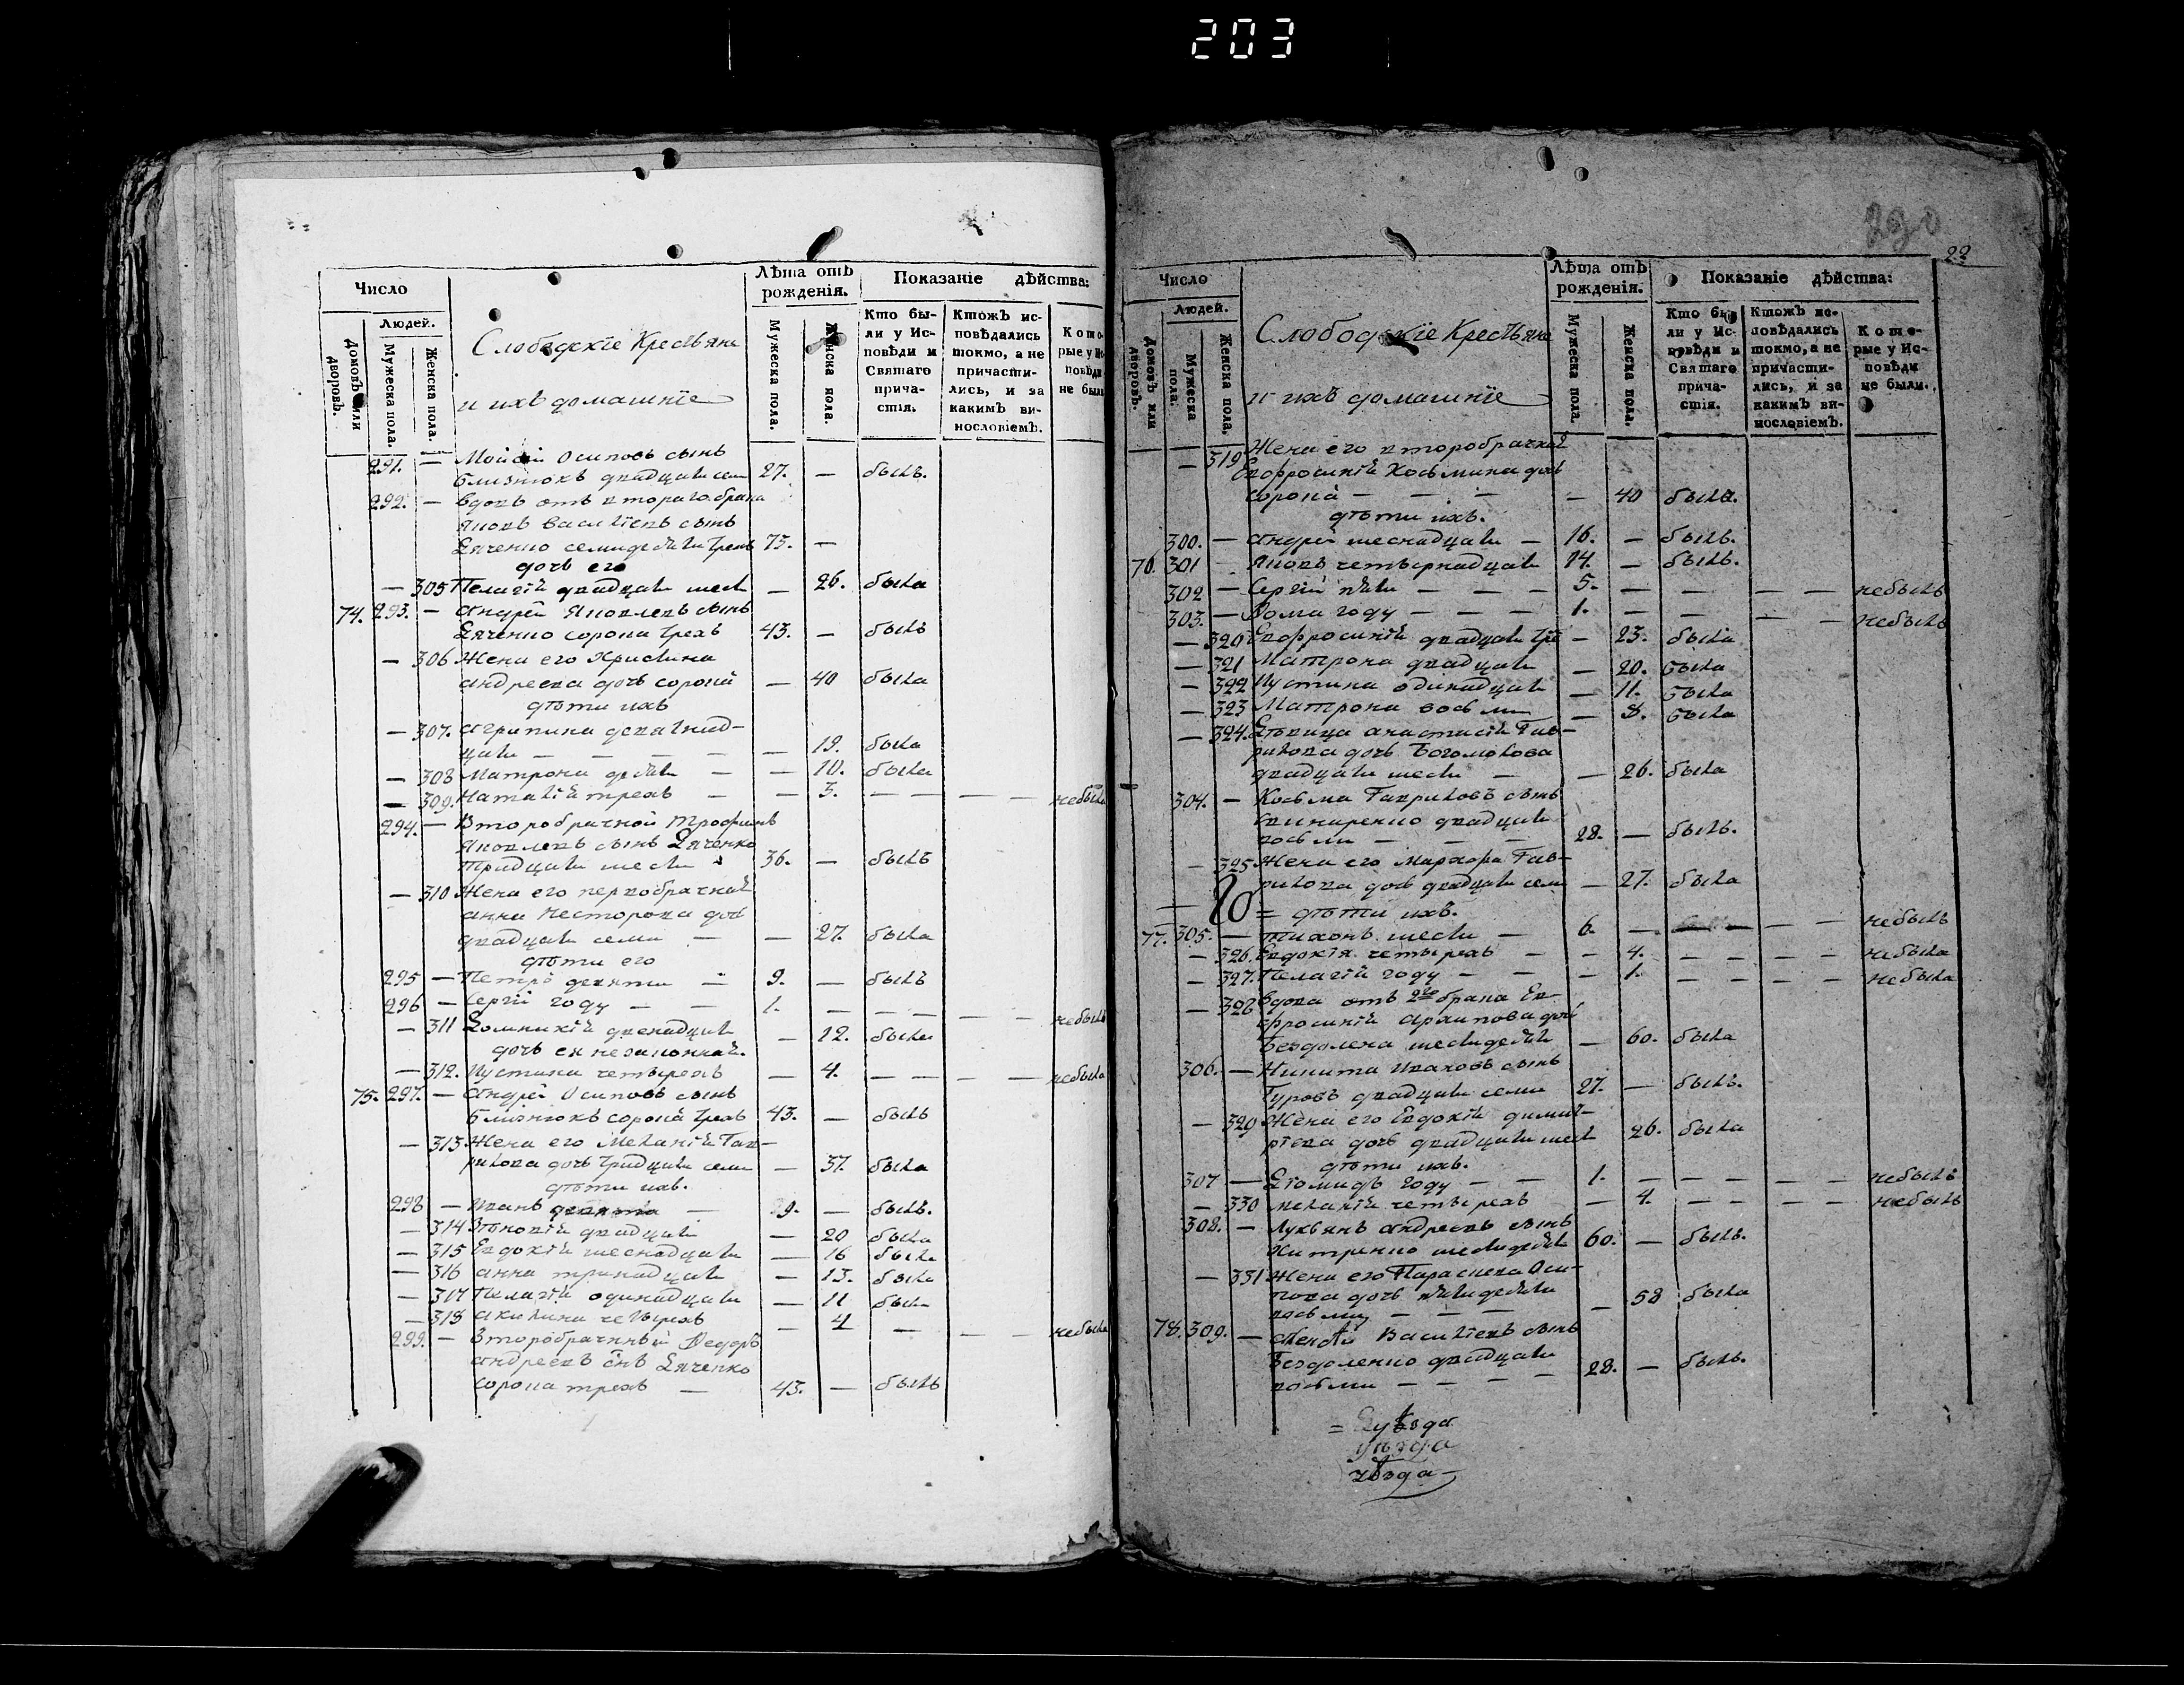 203
Число
Людей.
Домовъ или дворовъ.
Мужеска пола.
Женска пола.
Слободскіе Крестьяне
и ихъ домашніе
Лѣта отъ рожденія.
Мужеска пола.
Женска пола.
Показаніе дѣйства:
Кто бы-
ли у Ис-
повѣди и
Святаго
прича-
стія.
Ктожъ ис-
повѣдались
токмо, а не
причасти-
лись, и за
какимъ ви-
нословіемъ.
Кото-
рые у Ис-
повѣди
не были
291. — Мойсій Осиповъ сынъ
Близнюкъ двадцати семи 27. — былъ.
292. — вдовъ отъ втораго брака
Яковъ Василіевъ сынъ
Дяченко семидесяти трехъ 73. —
дочь его
— 305 Пелагія двадцати шести — 26. была
74. 293. — Андрей Яковлевъ сынъ
Дяченко сорока трехъ 43. — былъ
— 306 Жена его Христина
Андреева дочь сорока — 40 была
дѣти ихъ
— 307. Агрипина девятнад-
цати — — — 19. была
— 308 Матрона десяти — — 10. была
— 309. Наталія трехъ — — 3. — — — — небыла
294. — Второбрачной Трофимъ
Яковлевъ сынъ Дяченко
тридцати шести 36. — былъ
— 310 Жена его первобрачная
Анна Несторова дочь
двадцати семи — — 27. была
дѣти его
295 — Петръ девяти — 9. — былъ
296 — Сергій году — — 1. — — — — — небылъ
— 311 Домникія двенадцати — 12. была
дочь ея незаконная.
— 312. Иустина четырехъ — 4. — — — — небыла
75. 297. — Андрей Осиповъ сынъ
Близнюкъ сорока трехъ 43. — былъ
— 313 Жена его Меланія Гав-
рилова дочь тридцати семи — 37. была
дѣти ихъ.
298 — Иванъ девяти — 9. — былъ.
— 314 Зѣновія двадцати — 20 была
— 315 Евдокія шеснадцати — 16 была
— 316 Анна тринадцати — 13. была
— 317 Пелагія одинадцати — 11 была
— 318 Акилина четырехъ — 4 — — — небыла
299. — Второбрачный Ѳедоръ
Андреевъ снъ Дяченко
сорока трехъ — 43. — былъ
290
22
Число
Людей.
Домовъ или дворовъ.
Мужеска пола.
Женска пола.
Слободскіе Крестьяне
и ихъ домашніе
Лѣта отъ рожденія.
Мужеска пола.
Женска пола.
Показаніе дѣйства:
Кто бы-
ли у Ис-
повѣди и
Святаго
прича-
стія.
Ктожъ ис-
повѣдались
токмо, а не
причасти-
лись, и за
какимъ ви-
нословіемъ.
Кото-
рые у Ис-
повѣди
не были.
— 319 Жена его второбрачная
Евфросинія Косьмина дочь
сорока — — — — 40 была.
дѣти ихъ.
300. — Андрей шеснадцати — 16. — былъ.
76. 301 — Яковъ четырнадцати 14. — былъ.
302 — Сергій пяти — — — 5. — — — — небылъ
303. — Ѳома году — — — 1. — — — — небылъ
— 320 Евфросинія двадцати трехъ — 23. была
— 321 Матрона двадцати — 20. была
— 322 Иустина одинадцати — 11. была
— 323 Матрона восьми — 8. была
— 324. Дѣвица Анастасія Гав-
рилова дочь Богомолова
двадцати шести — — 26. была
304. — Косьма Гавриловъ сынъ
Свинаренко двадцати
восьми — — — 28. — былъ.
— 325 Жена его Марѳа Гав-
рилова дочь двадцати семи — 27. была
= дѣти ихъ.
77. 305. — Тихонъ шести — 6. — — — — небылъ
— 326. Евдокія четырехъ — — 4. — — — — небыла
— 327. Пелагія году — — — 1. — — — — небыла
— 328 Вдова отъ 2го брака Ев-
фросинія Архипова дочь
Бездолена шестидесяти — 60. была
306. — Никита Ивановъ сынъ
Гуровъ двадцати семи 27. — былъ.
— 329 Жена его Евдокія Димит-
ріева дочь двадцати шести 26. была
дѣти ихъ.
307 — Діомидъ году — — 1. — — — — — небылъ
— 330 Меланія четырехъ — 4. — — — — небылъ
308. — Лукьянъ Андреевъ сынъ
Хитренко шестидесяти 60. — былъ.
— 331 Жена его Параскева Оси-
пова дочь пятидесяти
восьми — — — — 58 была
78. 309. — Василіевъ сынъ
Бездоленко двадцати
восьми — — — — 28. — былъ.